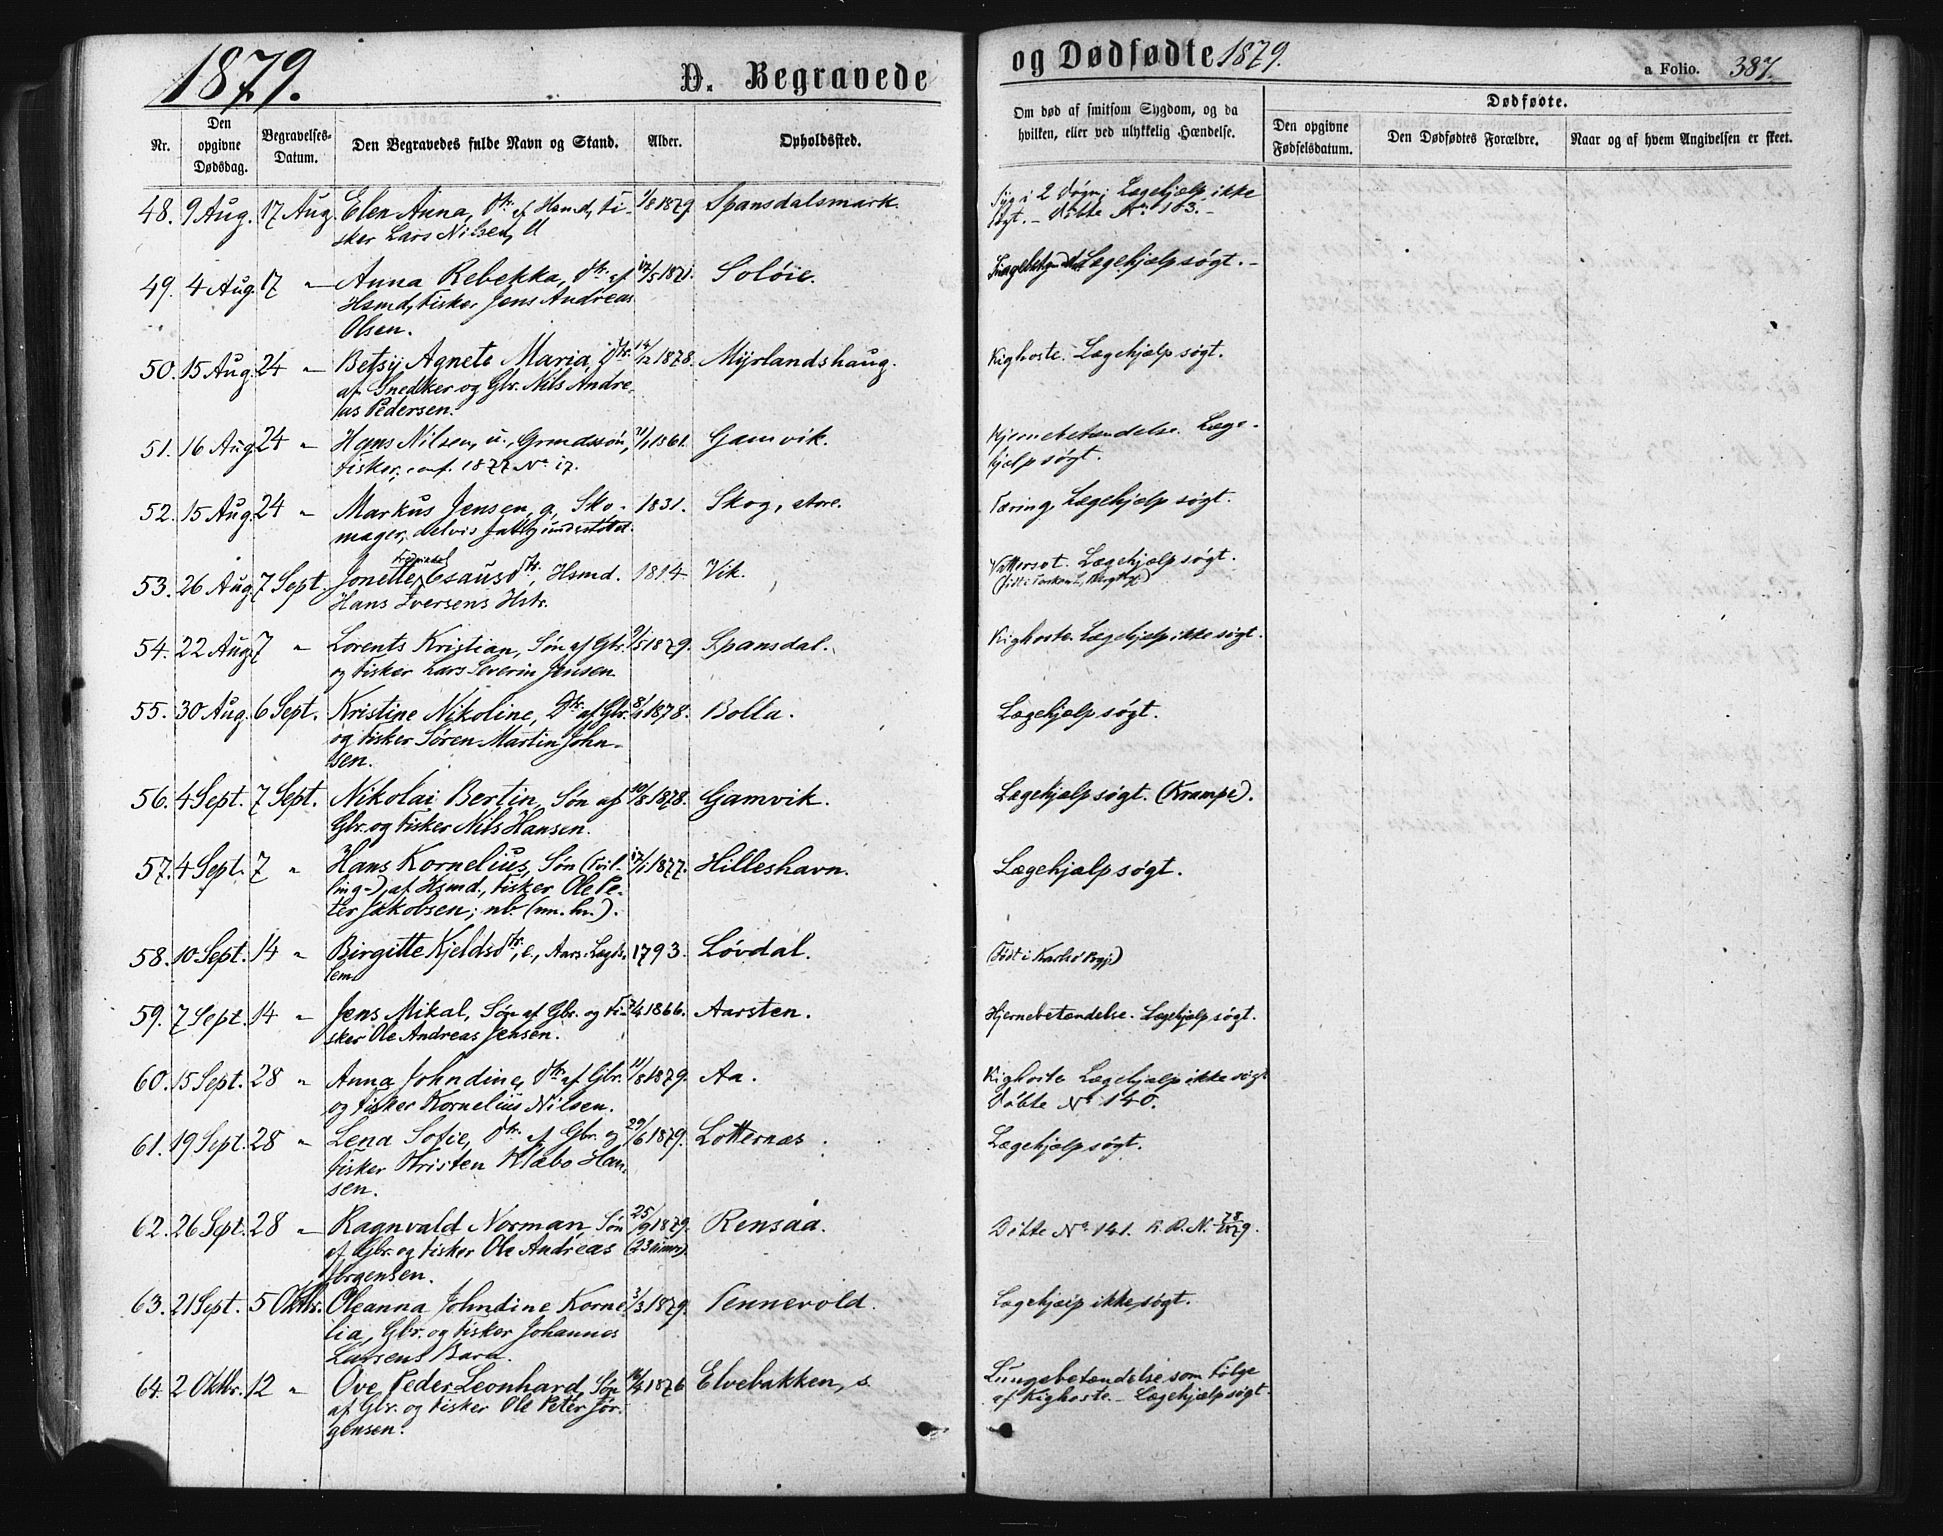 1879.
D. Begravede
og Dødfødte 1879.
a Folio. 387.
Nr.
Den opgivne Dødsdag.
Begravelses-Datum.
Den Begravedes fulde Navn og Stand.
Alder.
Opholdssted.
Om død af smitsom Sygdom, og da hvilken, eller ved ulykkelig Hændelse.
Dødfødte.
Den opgivne Fødselsdatum.
Den Dødfødtes Forældre.
Naar og af hvem Angivelsen er skeet.
48. 9 Aug. 17 Aug. Elen Anna, Dtr. af Hsmd, Fi- 1/8 1879 Spansdalsmark. Syg i 2 Døgn; Lægehjælp ikke
sker Lars Nilsen, søgt. – Døbte No 103. –
49. 4 Aug. 17 " Anna Rebekka, Dtr. af 17/5 1871. Soløie. Lægehjælp søgt. –
Hsmd, Fisker Jens Andreas
Olsen.
50. 15 Aug. 24 " Betsy Agnete Maria, Dtr. 14/12 1878. Myrlandshaug. Kighoste. Lægehjælp søgt.
af Snedker og Gbr. Nils Andre-
as Pedersen.
51. 16 Aug 24 " Hans Nilsen, u., Grmdssøn, 31/1 1861. Gamvik. Hjernebetændelse. Læge-
Fisker, conf. 1877 No 17. hjælp søgt.
52. 15 Aug. 24 " Markus Jensen, g, Sko- 1831. Skog, store. Tæring, Lægehjælp søgt.
mager, delvis fattigunderstøttet.
53. 26 Aug. 7 Sept. Jonette Esausdtr, Hsmd. 1814 Vik. Vattersot. Lægehjælp søgt.
Hans Iversens Hstr.
54. 22 Aug. 7 " Lorents Kristian, Søn af Gbr. 9/5 1879. Spansdal. Kighoste. Lægehjælp ikke søgt.
og Fisker Lars Severin Jensen
55. 30 Aug. 6 Sept. Kristine Nikoline, Dtr. af Gbr. 8/1 1878. Bolla. Lægehjælp søgt.
og Fisker Søren Martin John-
sen.
56. 4 Sept. 7 Sept. Nikolai Bertin, Søn af 10/8 1878. Gamvik. Lægehjælp søgt. (Krampe).
Gbr. og Fisker Nils Hansen.
57. 4 Sept. 7 " Hans Kornelius, Søn (tvil- 17/1 1877. Hilleshavn. Lægehjælp søgt.
ling-), af Hsmd., Fisker Ole Pe-
ter Jakobsen; nb. (nn. hr.).
58. 10 Sept. 14 " Birgitte Kjeldsdtr, e, Aars Lægds- 1793. Løvdal. (Født i Karlsø Prgj.)
lem
59. 7 Sept. 14 " Jens Mikal, Søn af Gbr. og Fi- 7/4 1866. Aarsten. Hjernebetændelse. Lægehjælp søgt.
sker Ole Andreas Jensen.
60. 15 Sept. 28 " Anna Johndine, Dtr. af Gbr. 11/8 1879. Aa. Kighoste Lægehjælp ikke søgt
og Fisker Kornelius Nilsen. Døbte No 140.
61. 19 Sept. 28 " Lena Sofie, Dtr. af Gbr. og 29/6 1879. Lotternæs. Lægehjælp søgt.
Fisker Kristen Klæbo Han-
sen.
62. 26 Sept. 28 " Ragnvald Norman, Søn 25/9 1879. Rensaa. Døbte No 141. K. D. N. 78/1879.
af Gbr. og Fisker Ole Andreas (23 timer)
Jørgensen.
63. 21 Sept. 5 Oktbr. Oleanna Johndine Korne- 3/3 1879. Tennevold. Lægehjælp ikke søgt.
lia, Gbr. og Fisker Johannes
Larsens Barn.
64. 2 Oktbr. 12 " Ove Peder Leonhard, Søn 16/4 1876 Elvebakken, s. Lungebetændelse som Følge
af Gbr. og Fisker Ole Peter Jør- af Kighoste. – Lægehjælp søgt.
gensen.